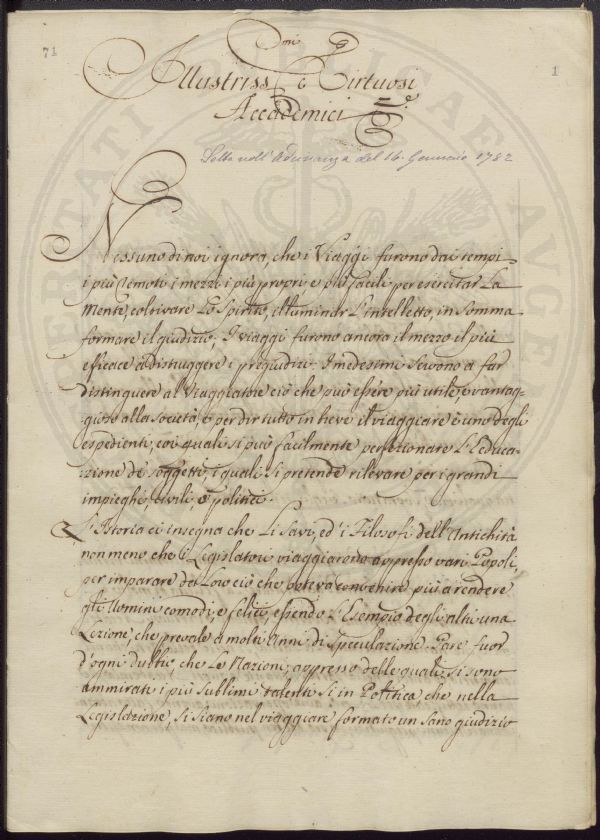 71
1
Illustriss.mi e Virtuosi
Accademici
Letta nell'Adunanza del 16. Gennaio 1782
Nessuno di noi ignora, che i Viaggi furono dai tempi
i più remoti i mezzi i più propri e più facili per esercitar La
Mente, coltivare Lo Spirito, illuminar L'intelletto, in somma
formare il giudizio; I viaggi furono ancora il mezzo il più
efficace a distruggere i pregiudizi: I medesimi servono a far
distinguere al Viaggiatore ciò che può essere più utile, e vantag-
gioso alla società, e per dir tutto in breve il viaggiare è uno degli
espedienti, coi quali si può facilmente perfezionare L'Educa-
zione de' soggetti, i quali si pretende rilevare per i grandi
impieghi, civili, e politici.
L'Istoria ci insegna che Li Savi, ed i Filosofi dell'Antichità
non meno che i Legislatori viaggiarono appresso vari Popoli,
per imparare da Loro ciò che poteva convenire più a rendere
gli Uomini comodi, e felici, essendo L'Esempio degli altri una
Lezione, che prevale a molti Anni di Speculazione. Pare fuor
d'ogni dubio, che Le Nazioni, appresso delle quali si sono
ammirati i più sublimi talenti sì in Politica, che nella
Legislazione, si siano nel viaggiare formato un sano giudizio